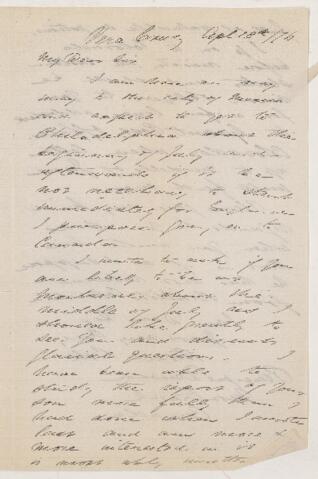 Vera Cruz Apl 18th/76
My Dear Sir
I am here on my
way to the city of Mexico
and expect to go to
Philadelphia about the
beginning of July and
afterwards if it be
not necessary to
immediately for England
I purpose going on to
Canada
I write to ask if you
are likely to be in
Montreal about the
middle of July as I
should like greatly to
see you and discuss
Glacial questions. I
have been able to
study the report of your
son more fully than I
had done when I wrote
last and am more &
more interested in it
a most able